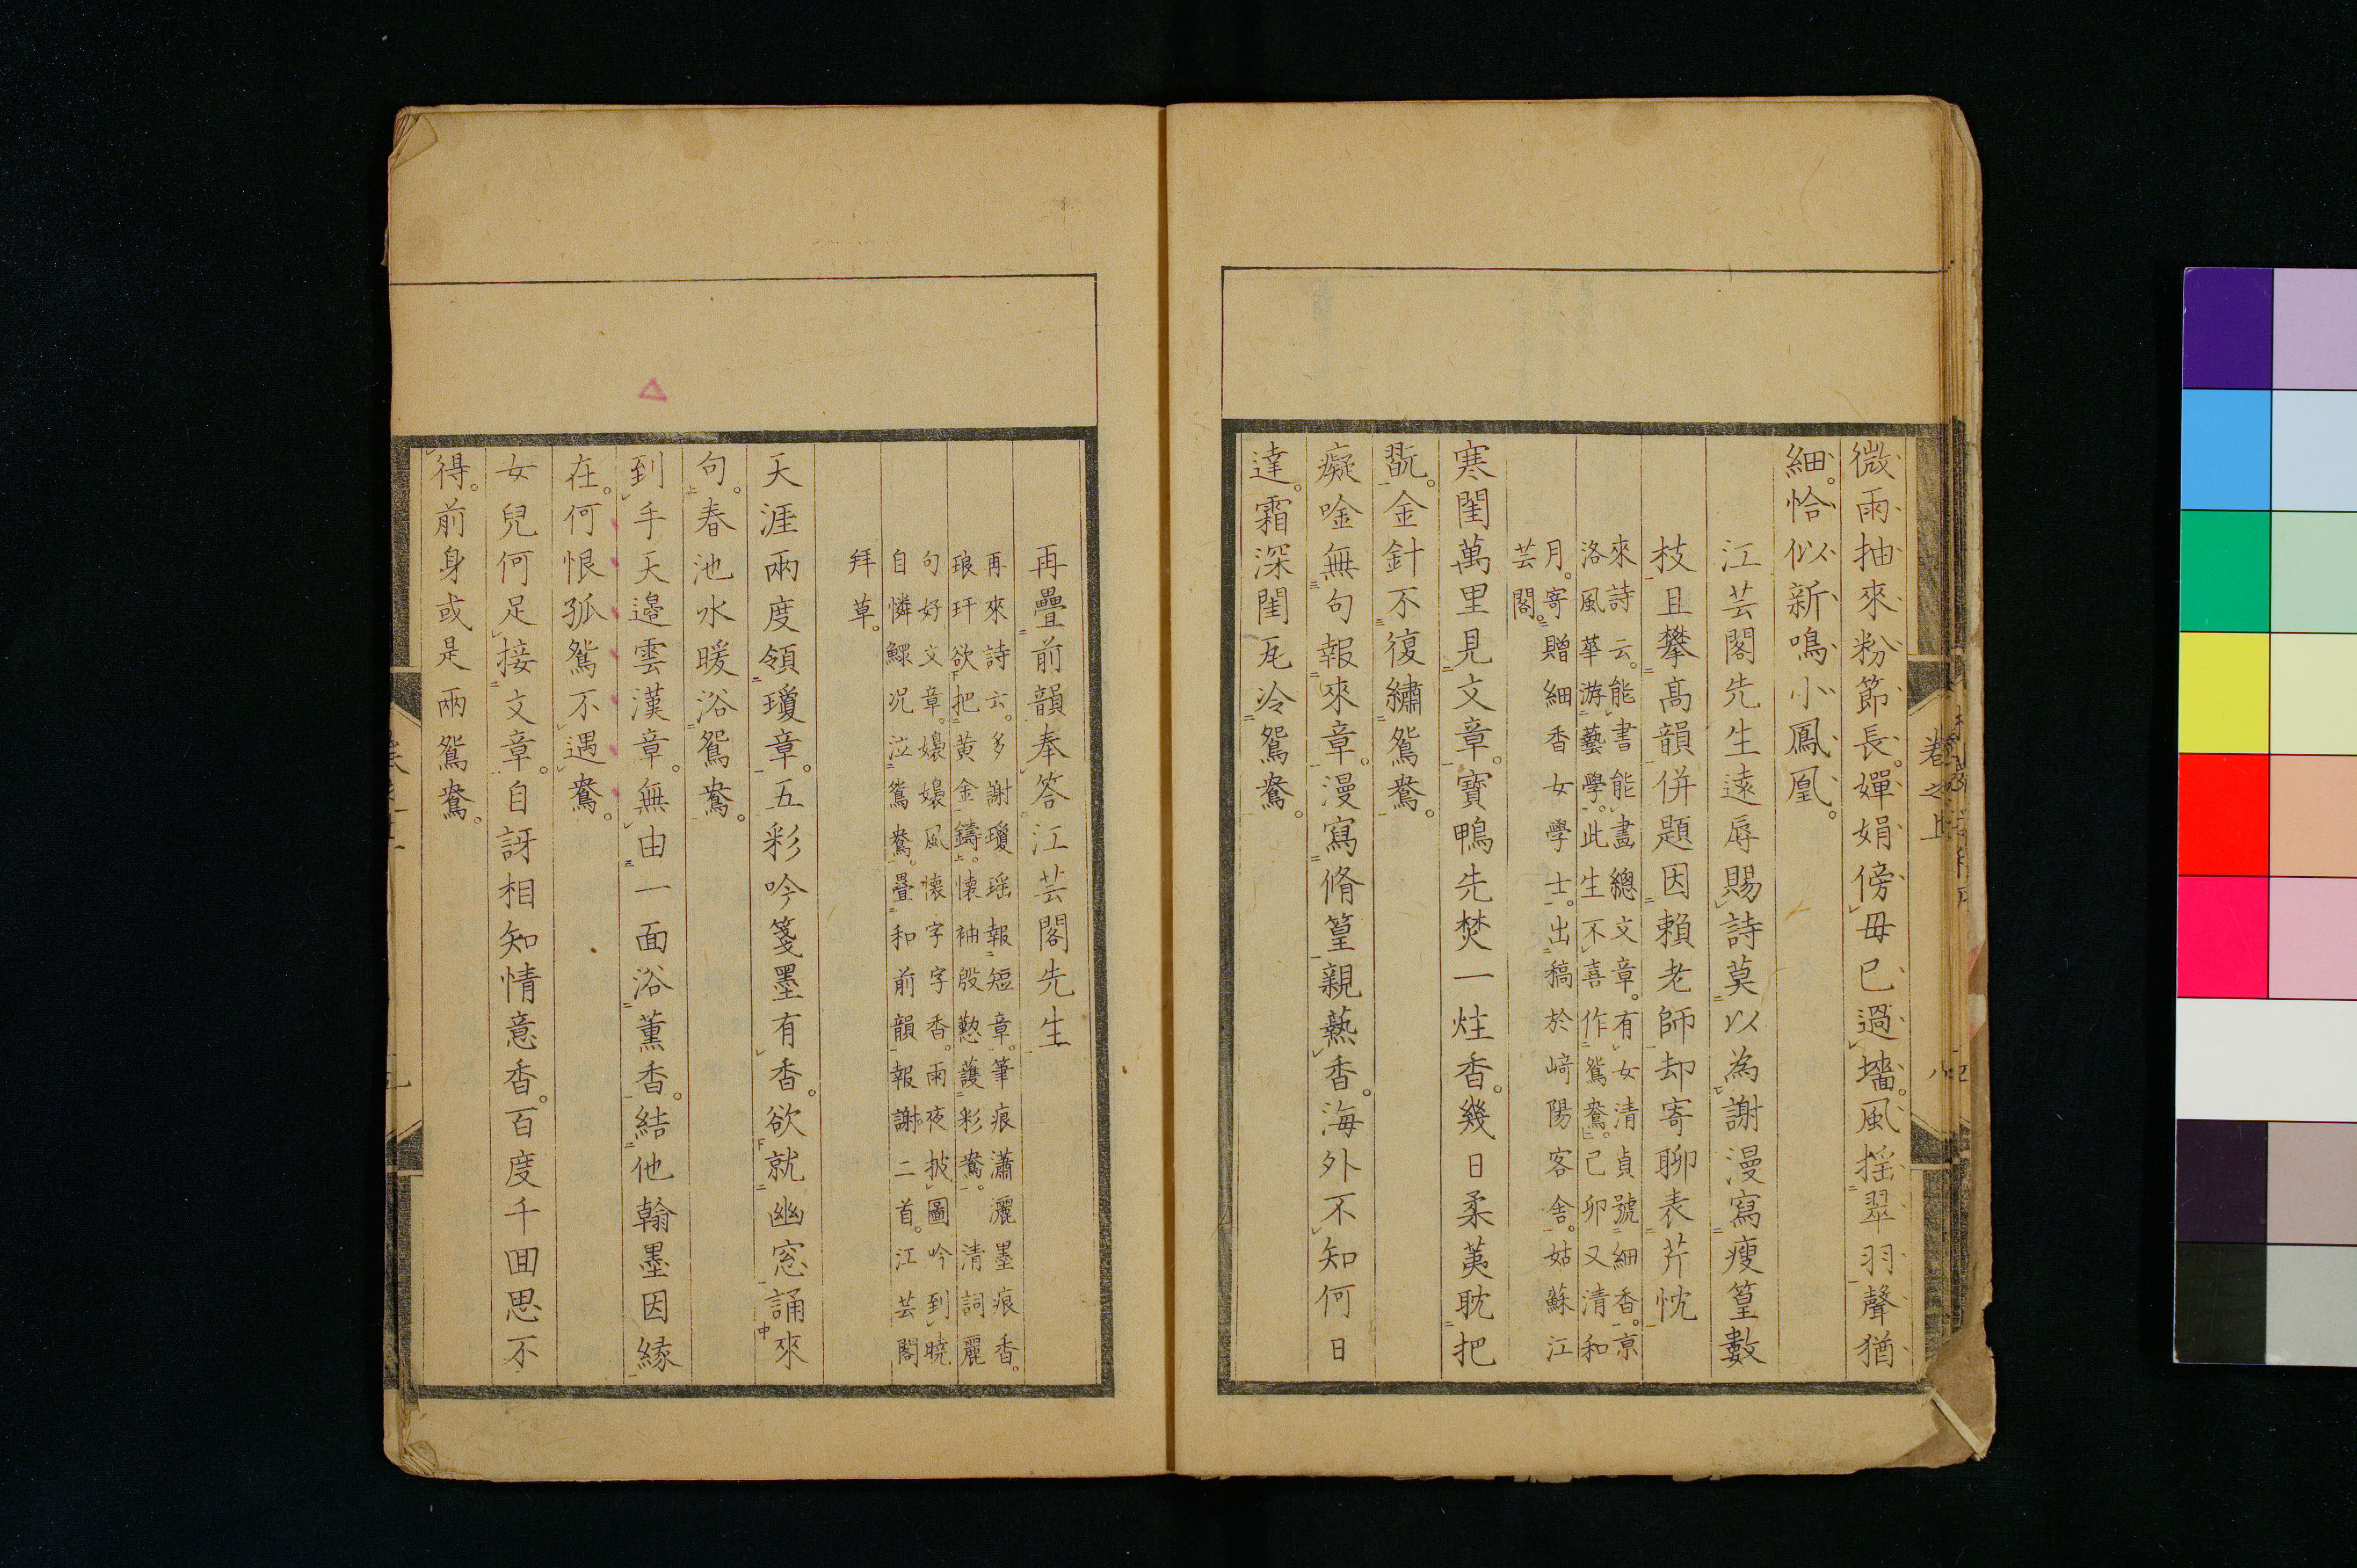 微雨抽來粉節長。嬋娟傍母已過墻。風揺翠羽聲猶
細。恰似新鳴小鳳凰。
江芸閣先生遠辱賜詩莫以為謝漫寫瘦篁數
枝且攀高韻併題因賴老師却寄聊表芹忱
來詩云。能書能畫總文章。有女清貞號細香。京
洛風華游藝學。此生不喜作鴛鴦。己卯又清和
月。寄贈細香女學士。出稿於崎陽客舍。姑蘇江
芸閣。
寒閨萬里見文章。寶鴨先焚一炷香。幾日柔荑耽把
翫。金針不復繡鴛鴦。
癡唫無句報來章。漫寫脩篁親爇香。海外不知何日
達。霜深閨瓦冷鴛鴦。
卷之上
再疊前韻奉答江芸閣先生
再來詩云。多謝瓊瑶報短章。筆痕瀟灑墨痕香。
琅玕欲把黄金鑄。懐袖殷懃護彩鴦。清詞麗
句好文章。嬝嬝風懐字字香。雨夜披圖吟到曉
自憐鰥況泣鴛鴦。疊和前韻報謝二首。江芸閣
拜草。
天涯兩度領瓊章。五彩吟箋墨有香。欲就幽窓誦來
句。春池水暖浴鴛鴦。
到手天邉雲漢章。無由一面浴薫香。結他翰墨因縁
在。何恨孤鴛不遇鴦。
女兒何足接文章。自訝相知情意香。百度千回思不
得。前身或是兩鴛鴦。